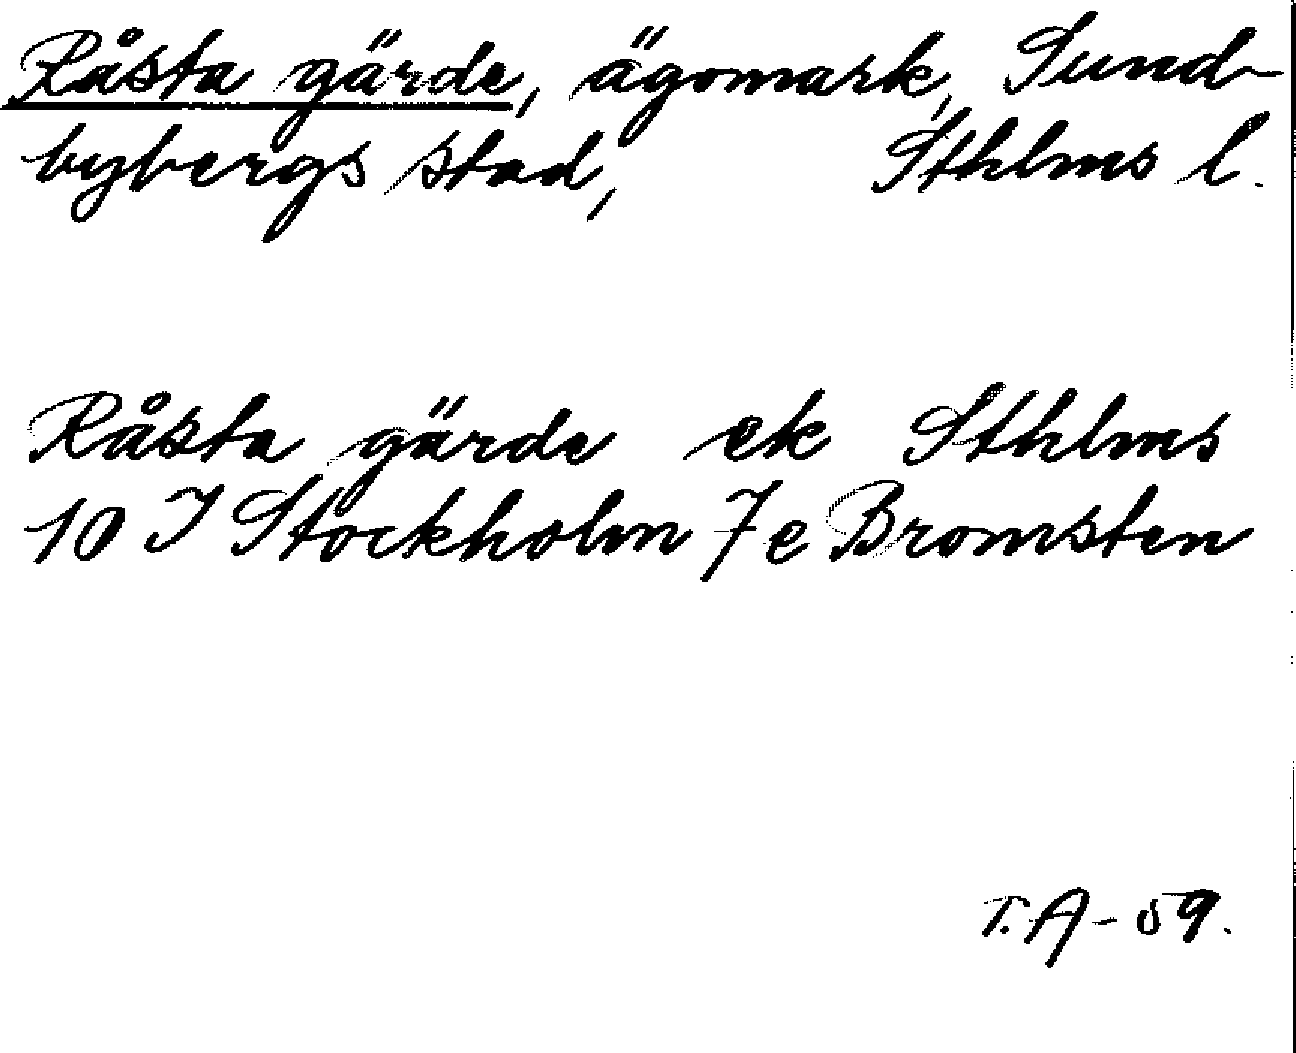 Råsta gärde, ägomark, Sund-
bybergs stad, Sthlms l.
Råsta gärde ek Sthlms
10 I Stockholm 7 e Bromsten
T.A-59.